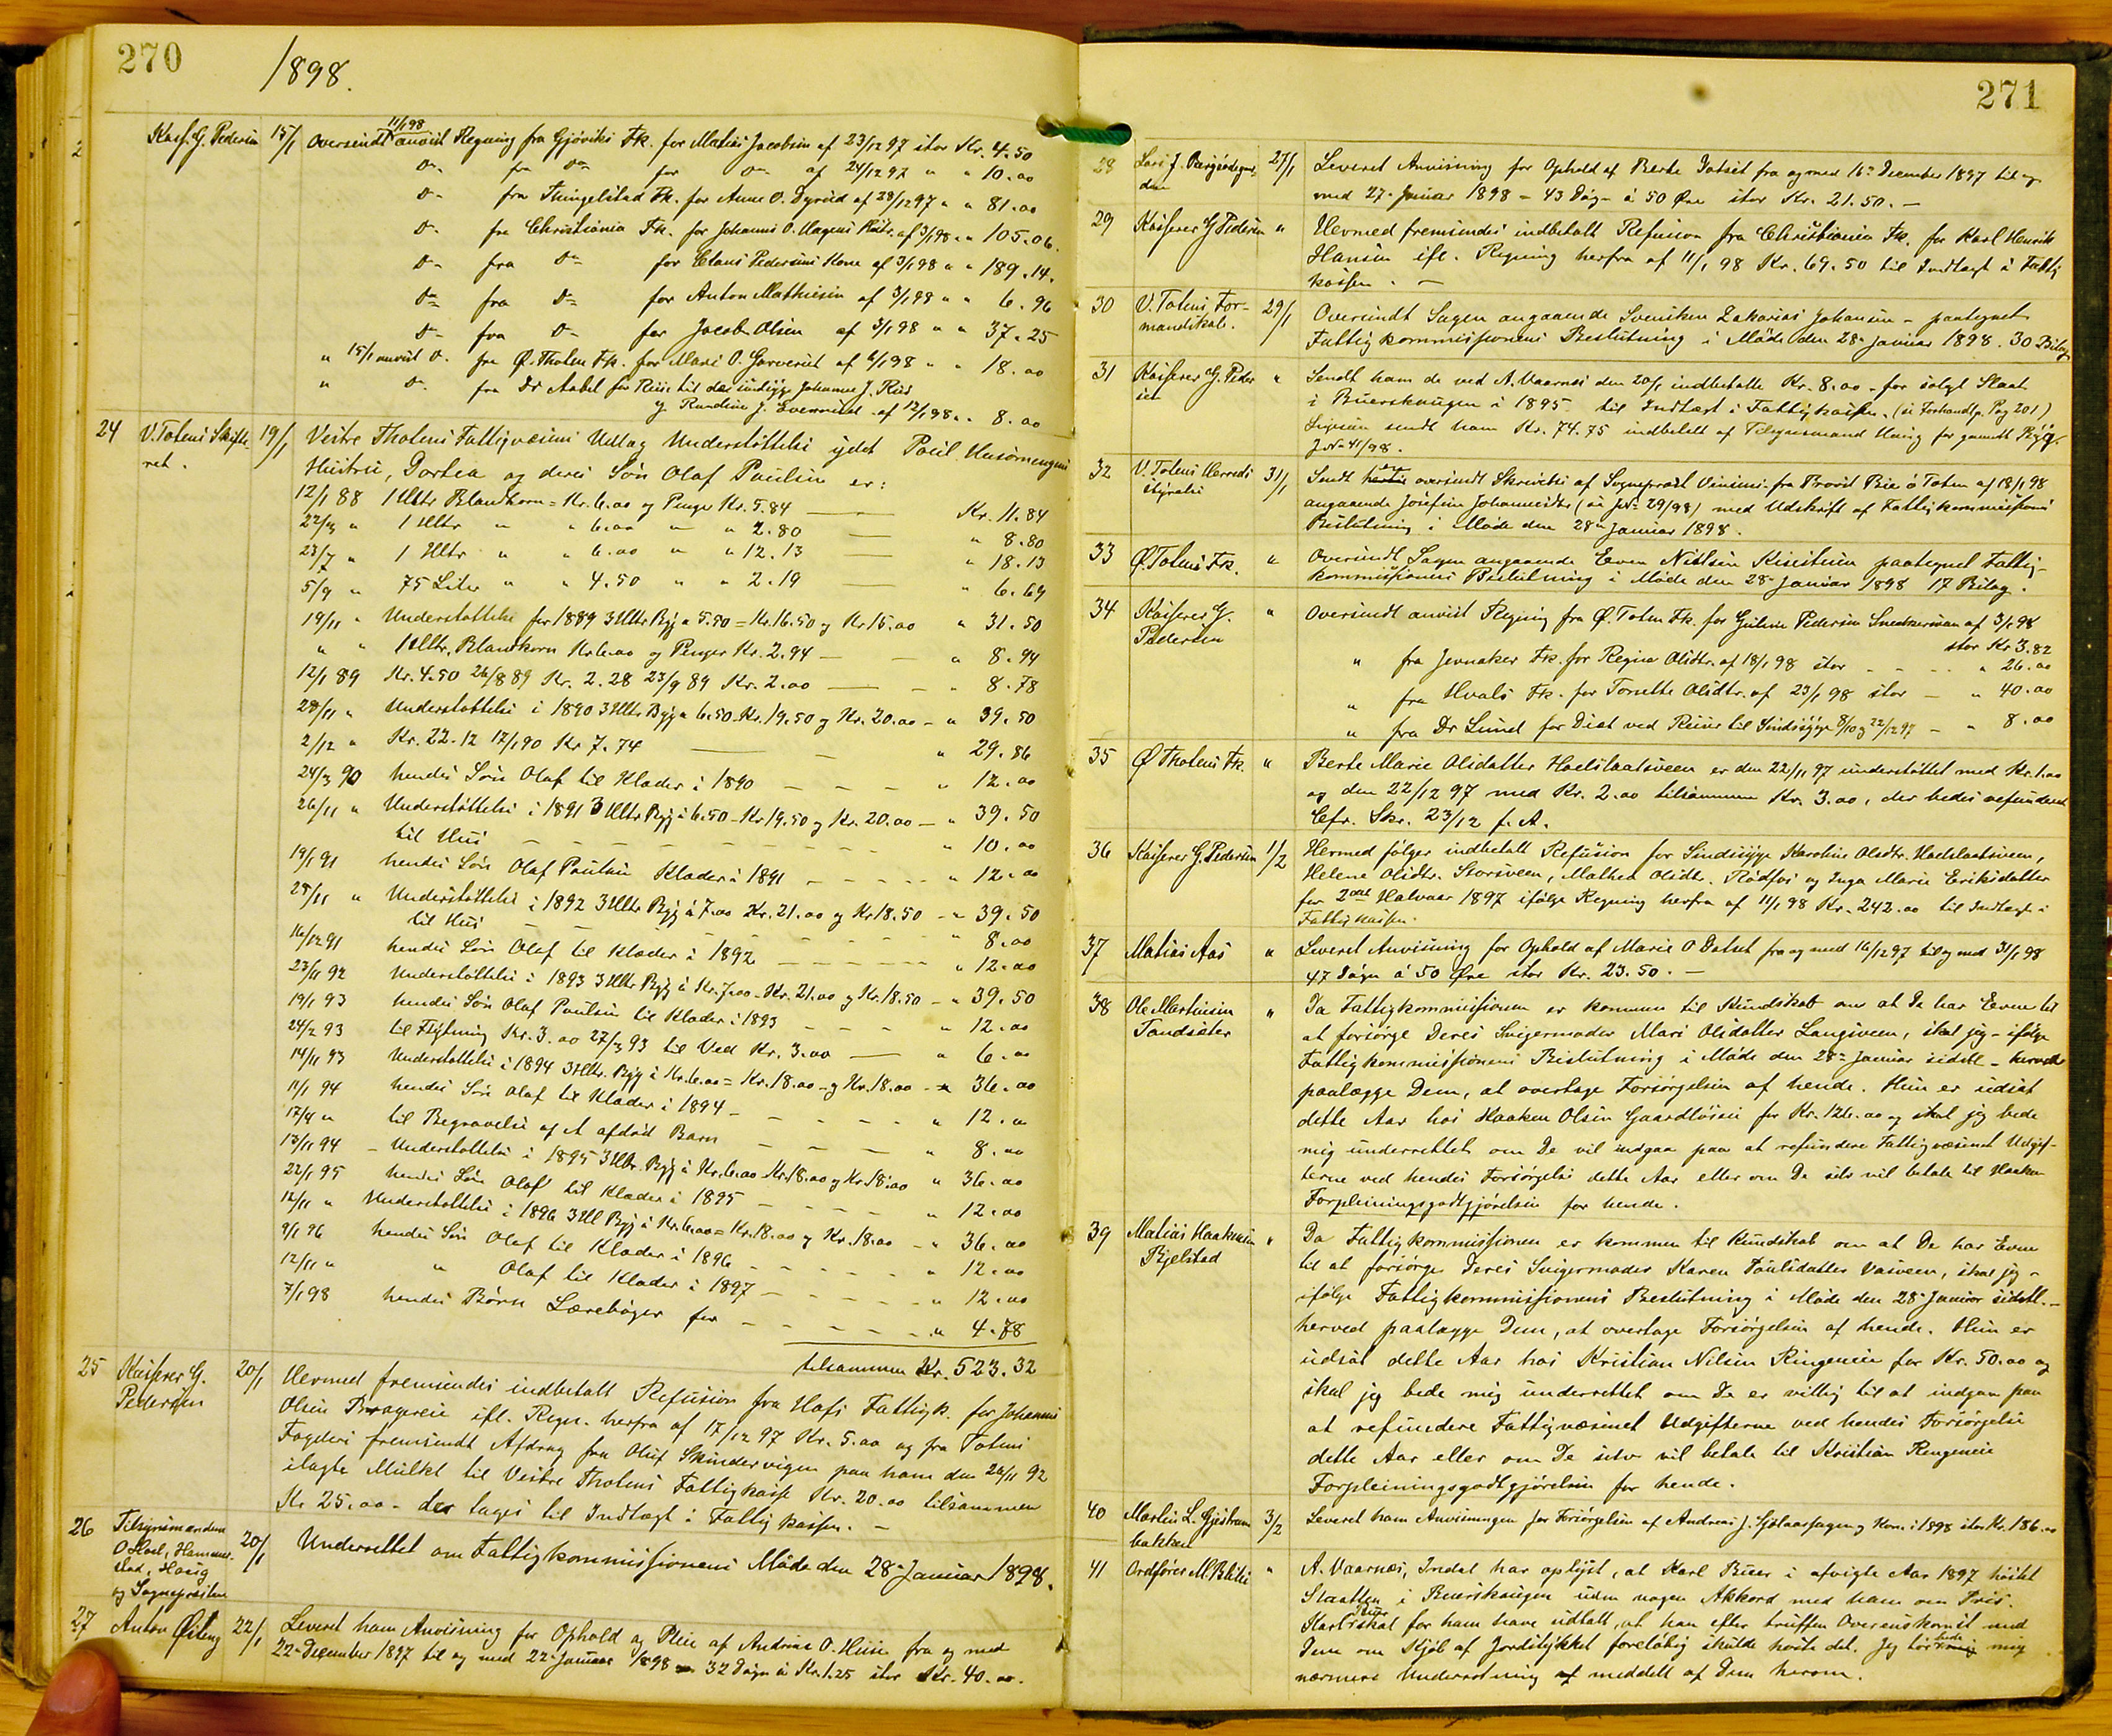 270
1898.
Kass. G. Pedersen 15/1 Oversendt 11/1 98 anvist Regning fra Gjøviks Fk. for Matias Jacobsen af 23/12 97 stor Kr. 4.50
Do fra Do for Do af 24/12 97 " " 10.00
Do fra Thingelstad Fk. for Anne O. Dynrud af 28/12 97 " " 81.00
Do fra Christiania Fk. for Johannes O. Hagens af 3/1 98 " " 105.06.
Do fra Do for Claus Pedersens Kone af 3/1 98 " " 189.14.
Do fra Do for Anton Mathiesen af 3/1 98 " " 6.96
Do fra Do for Jacob Olsen af 3/1 98 " " 37.25
" 15/1 anvist Do fra Ø. Thoten Fk. for Mari O. Garverut af 6/1 98 " " 18.00
" Do fra Dr Aabel for Reise til de sindsyge Johanne J.
og Rundine J. af 12/1 98 " " 8.00
24 V. Totens Skifte- 19/1 Vestre Thotens Fattigvæsens Udlæg Understøttelse ydet Poul
ret. Hustru, Dortea og deres Søn Olaf Paulsen er:
12/1 88 1 Hltr Blandkorn = Kr. 6.00 og Penger Kr. 5.84 — Kr. 11.84
22/3 " 1 Hltr " " 6.00 " " 2.80 — " 8.80
23/7 " 1 Hltr " " 6.00 " " 12.13 — " 18.13
5/9 " 75 Liter " " 4.50 " " 2.19 — " 6.69
19/11 " Understøttelse for 1889 3 Hltr Byg a 5.50 = Kr. 16.50 og Kr 15.00 " 31.50
" " 1 Hltr. Blandkorn Kr 6.00 og Penger Kr. 2.94 — " 8.94
12/1 89 Kr. 4.50 26/8 89 Kr. 2.28 23/9 89 Kr. 2.00 — " 8.78
28/11 " Understøttelse i 1890 3 Hltr Byg a 6.50 - Kr. 19.50 og Kr. 20.00 - " 39.50
2/12 " Kr. 22.12 12/1 90 Kr 7.74 — " 29.86
24/3 90 hendes Søn Olaf til Klæder i 1890 - - - " 12.00
26/11 " Understøttelse i 1891 3 Hltr Byg à 6.50 - Kr 19.50 og Kr. 20.00 - " 39.50
til Hus - - - - " 10.00
19/1 91 hendes Søn Olaf Paulsen Klæder i 1891 - - - " 12.00
25/11 " Understøttelse i 1892 3 Hltr Byg à 7.00 Kr. 21.00 og Kr 18.50 - " 39.50
til Hus - - - - " 8.00
16/12 91 hendes Søn Olaf til Klæder i 1892 - - - " 12.00
23/11 92 Understøttelse i 1893 3 Hltr Byg à Kr. 7.00 - Kr. 21.00 og Kr. 18.50 - " 39.50
19/1 93 hendes Søn Olaf Paulsen til Klæder i 1893 - - - " 12.00
24/2 93 til Flytning Kr. 3.00 27/3 93 til Ved Kr. 3.00 — " 6.00
14/11 93 Understøttelse i 1894 3 Hltr. Byg à Kr. 6.00 = Kr. 18.00 og Kr. 18.00 - " 36.00
11/1 94 hendes Søn Olaf til Klæder i 1894 - - - " 12.00
17/4 " til Begravelse af et afdød Barn - - - " 8.00
13/11 94 - Understøttelse i 1895 3 Hltr. Byg à Kr. 6.00 - Kr. 18.00 og Kr. 18.00 " 36.00
22/1 95 hendes Søn Olaf til Klæder i 1895 - - - " 12.00
12/11 " Understøttelse i 1896 3 Hl Byg à Kr. 6.00 = Kr. 18.00 og Kr. 18.00 - " 36.00
9/1 96 hendes Søn Olaf til Klæder i 1896 - - - " 12.00
12/11 " " Olaf til Klæder i 1897 - - - " 12.00
7/1 98 hendes Børn Lærebøger for - - - " 4.78
tilsammen Kr. 523.32
25 Kasserer G. 20/1 Hermed fremsendes indbetalt Refusion fra Hofs Fattigk. for Johannes
Pedersen Olsen ifl. Regn. herfra af 17/12 97 Kr. 5.00 og fra Totens
Fogderi fremsendt Afdrag fra Oluf Skindervigen paa ham den 26/11 92
ilagte Mulkt til Vestre Thotens Fattigkasse Kr. 20.00 tilsammen
Kr 25.00 - der tages til Indtægt i Fattigkassen. -
26 Tilsynsmændene 20/1 Underrettet om Fattigkommissionens Møde den 28 Januar 1898.
og Sognepresten
27 Anton Østeng 22/1 Leveret ham Anvisning for Ophold og Pleie af Andreas O. Huse fra og med
22 December 1897 til og med 22 Januar 1898 - 32 Døgn à Kr. 1.25 stor Kr. 40.00.
271
28 Lars J. 27/1 Leveret Anvisning for Ophold af Berte Datset fra og med 16 December 1897 til og
med 27 Januar 1898 - 43 Døg - à 50 Øre stor Kr. 21.50. -
29 Kasserer G Pedersen " Hermed fremsendes indbetalt Refusion fra Christiania Fk. for Karl Henrik
Hansen ifl. Regning herfra af 11/1 98 Kr. 69.50 til Indtægt i Fattig
kassen. -
30 V. Totens For- 29/1 Oversendt Sagen angaaende Svensken Zakarias Johansen - paategnet
mandskab. Fattigkommissionens Beslutning i Møde den 28 Januar 1898. 30 Bilag
31 Kasserer G. Peder " Sendt ham de ved A. Vaarnes den 20/1 indbetalte Kr. 8.00 - for solgt Slaat
sen i Buerskaugen i 1895 til Indtægt i Fattigkassen. (se Forhandlp. Pag 201)
Ligesaa sendt ham Kr. 74.75 indbetalt af Tilsynsmand Haug for gammelt
J. No 41/98.
32 V. Totens Herreds 31/1 Sendt oversendt Skrivelse af Sogneprest fra Provst Brie ø Toten af 18/1 98
styrelse angaaende Josefine Johannesdtr (se No 29/98) med Udskrift af Fattigkommissions
Beslutning i Møde den 28 Januar 1898.
33 Ø. Totens Fk. " Oversendt Sagen angaaende Even Nielsen paategnet Fattig-
kommissionens Beslutning i Møde den 28 Januar 1898 17 Bilag.
34 Kasserer G. " Oversendt anvist Regning fra Ø. Toten Fk. for Guline Pedersen af 3/1 98
Pedersen stor Kr 3.82
" fra Jevnaker Fk. for Regine Olsdtr. af 18/1 98 stor - - " 26.00
" fra Hvals Fk. for Tonette Olsdtr. af 23/1 98 stor - " 40.00
" fra Dr Lund for Diæt ved Reiser til Sindssyge 8/10 og 22/12 97 - " 8.00
35 Ø Thotens Fk. " Berte Marie Olsdatter Haelslaatsveen er den 22/11 97 understøttet med Kr. 1.00
og den 22/12 97 med Kr. 2.00 tilsammen Kr. 3.00, der bedes refunderet
Cfr. Skr. 23/12 f. A.
36 Kasserer G. Pedersen 1/2 Hermed følger indbetalt Refusion for Sindssyge Karoline Olsdtr. Haelslaatsveen,
Helene Olsdtr. Storsveen, Mathea Olsdtr. Rødfos og Inga Marie Eriksdatter
for 2det Halvaar 1897 ifølge Regning herfra af 11/1 98 Kr. 242.00 til Indtægt i
Fattigkassen.
37 Matias Aas " Leveret Anvisning for Ophold af Marie O Datset fra og med 16/12 97 til og med 31/1 98
47 Døgn à 50 Øre stor Kr. 23.50. -
38 Ole Martinsen " Da Fattigkommissionen er kommen til Kundskab om at De har Evne til
Sandsæter at forsørge Deres Svigermoder Mari Olsdatter Langsveen, skal jeg - ifølge
Fattigkommissionens Beslutning i Møde den 28 Januar sidstl - herved
paalægge Dem, at overtage Forsørgelsen af hende. Hun er udsat
dette Aar hos Haaken Olsen Gaardløsen for Kr. 126.00 og skal jeg bede
mig underrettet om De vil indgaa paa at refundere Fattigvæsenet Udgif-
terne ved hendes Forsørgelse dette Aar eller om De selv vil betale til Haaken
Forpleiningsgodtgjørelsen for hende.
39 Matias Haakensen " Da Fattigkommissionen er kommen til Kundskab om at De har Evne
Bjelstad til at forsørge Deres Svigermoder Karen Paulsdatter Vasveen, skal jeg -
ifølge Fattigkommissionens Beslutning i Møde den 28 Januar sidstl. -
herved paalægge Dem, at overtage Forsørgelsen af hende. Hun er
udsat dette Aar hos Kristian Nilsen Ringeneie for Kr. 50.00 og
skal jeg bede mig underrettet om De er villig til at indgaa paa
at refundere Fattigvæsenet Udgifterne ved hendes Forsørgelse
dette Aar eller om De selv vil betale til Kristian Ringeneie
Forpleiningsgodtgjørelsen for hende.
40 Martin L. Gjestrum 3/2 Leveret ham Anvisningen for Forsørgelsen af Andreas J. og Kone i 1898 stor Kr. 186.00
bakken
41 Ordfører M. Blilie " A. Vaarnes, Indal har oplyst, at Karl Buer i afvigte Aar 1897 høstet
Slaatten i Buerskaugen uden nogen Akkord med ham om Pris.
Karl Buer skal for ham have udtalt, at han efter truffen Overenskomst med
Dem om Kjøb af Jordstykket foreløbig skulde høste det. Jeg tør bede mig
nærmere Underretning meddelt af Dem herom.